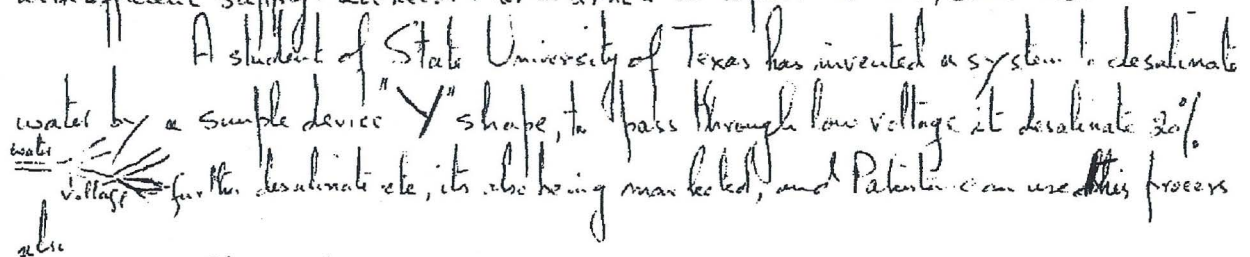 A student of State University of Texas has invented a system to desalinate
water by a simple device "Y" shape, to pass through low voltage it desalinate 20%
water
voltage further desalinate etc, its also being marketed, and Patente can use this process
also